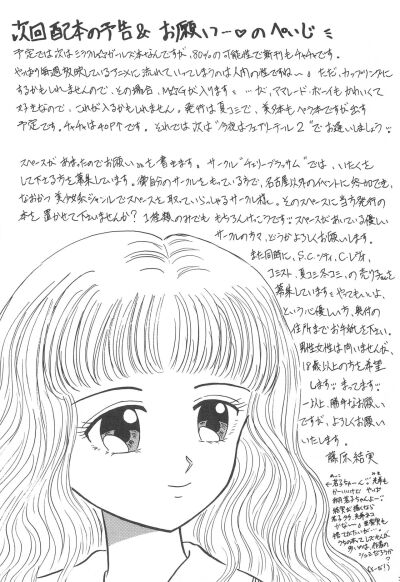 次回配本の予告& お願いっー♡のぺいじ
予定では次はミラクル☆ガールズ本なんですが、80%の可能性で新刊もチャチャです。
やっぱり毎週放映しているアニメに流れていってしまうのは人間の性ですね〜。ただ、カップリングに
するかもしれませんので、その場合、M☆Gが入ります。…が、ママレード・ボーイもかわいくて
好きなので、これが入るかもしれません。発行は夏コミで、
予定です。チャチャは40Pです。それでは次は"今夜はフェアリーテール2"でお逢いしましょう
スペースがあまったのでお願いを書きます。サークル"チェリーブラッサム"では、いたくを
して下さる方を募集しています。御自分のサークルをもっている方で、名古屋以外のイベントに参加でき、
なおかつ美少女ジャンルでスペースを取っていらっしゃるサークル様。そのスペースに当方発行の
本を置かせて下さいませんか? 1種類のみでももちろんけっこうです。スペースがあいている優しい
サークルの方々、どうかよろしくお願いします。
また同時に、S.C.シティ、C.レヴォ、
コミスト、夏コミ冬コミ、の売り子さんも
募集しています。やってもいいよ、
という心優しい方、奥付の
住所までお手紙を下さい。
男性女性は問いませんが、
18歳以上の方を希望
します。まってます。
以上、勝手なお願い
ですが、よろしくお願い
いたします。
藤原結実